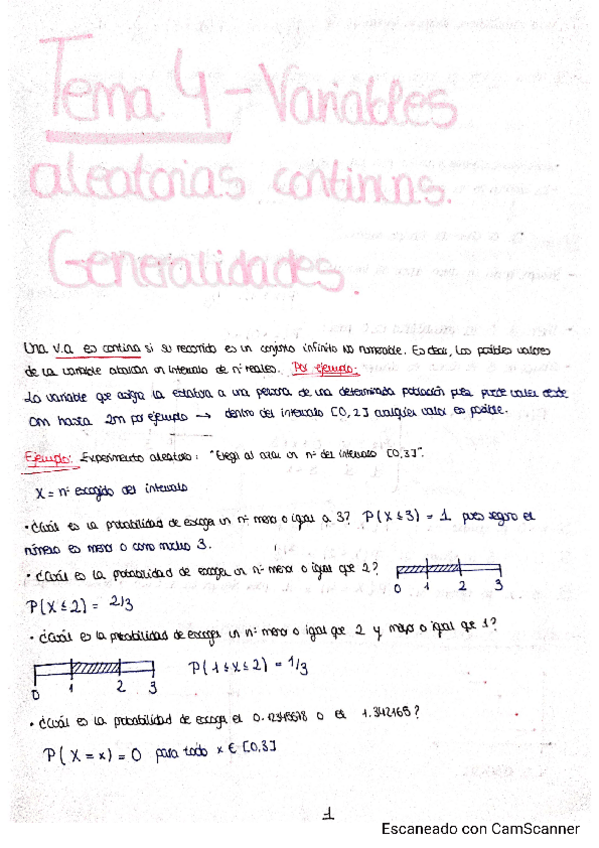 Tema 4 - Variables
aleatorias continuas.
Generalidades.
Una v.a es continua si su recorrido es un conjunto infinito no numerable. Es decir, los posibles valores
de la variable abarcan un intervalo de nº reales. Por ejemplo:
La variable que asigna la estatura a una persona de una determinada población pues puede valer desde
0m hasta 2m por ejemplo → dentro del intervalo [0,2] cualquier valor es posible.
Ejemplo: Experimento aleatorio: "Elegir al azar un nº del intervalo [0,3]".
X = nº escogido del intervalo
• ¿Cuál es la probabilidad de escoger un nº menor o igual a 3? P(X ≤ 3) = 1 pues seguro el
número es menor o como mucho 3.
• ¿Cuál es la probabilidad de escoger un nº menor o igual que 2?
0 1 2 3
P(X ≤ 2) = 2/3
• ¿Cuál es la probabilidad de escoger un nº menor o igual que 2 y mayor o igual que 1?
P(1 ≤ x ≤ 2) = 1/3
0 1 2 3
• ¿Cuál es la probabilidad de escoger el 0.12345678 o el 1.342165?
P(X = x) = 0 para todo x ∈ [0,3]
1
Escaneado con CamScanner